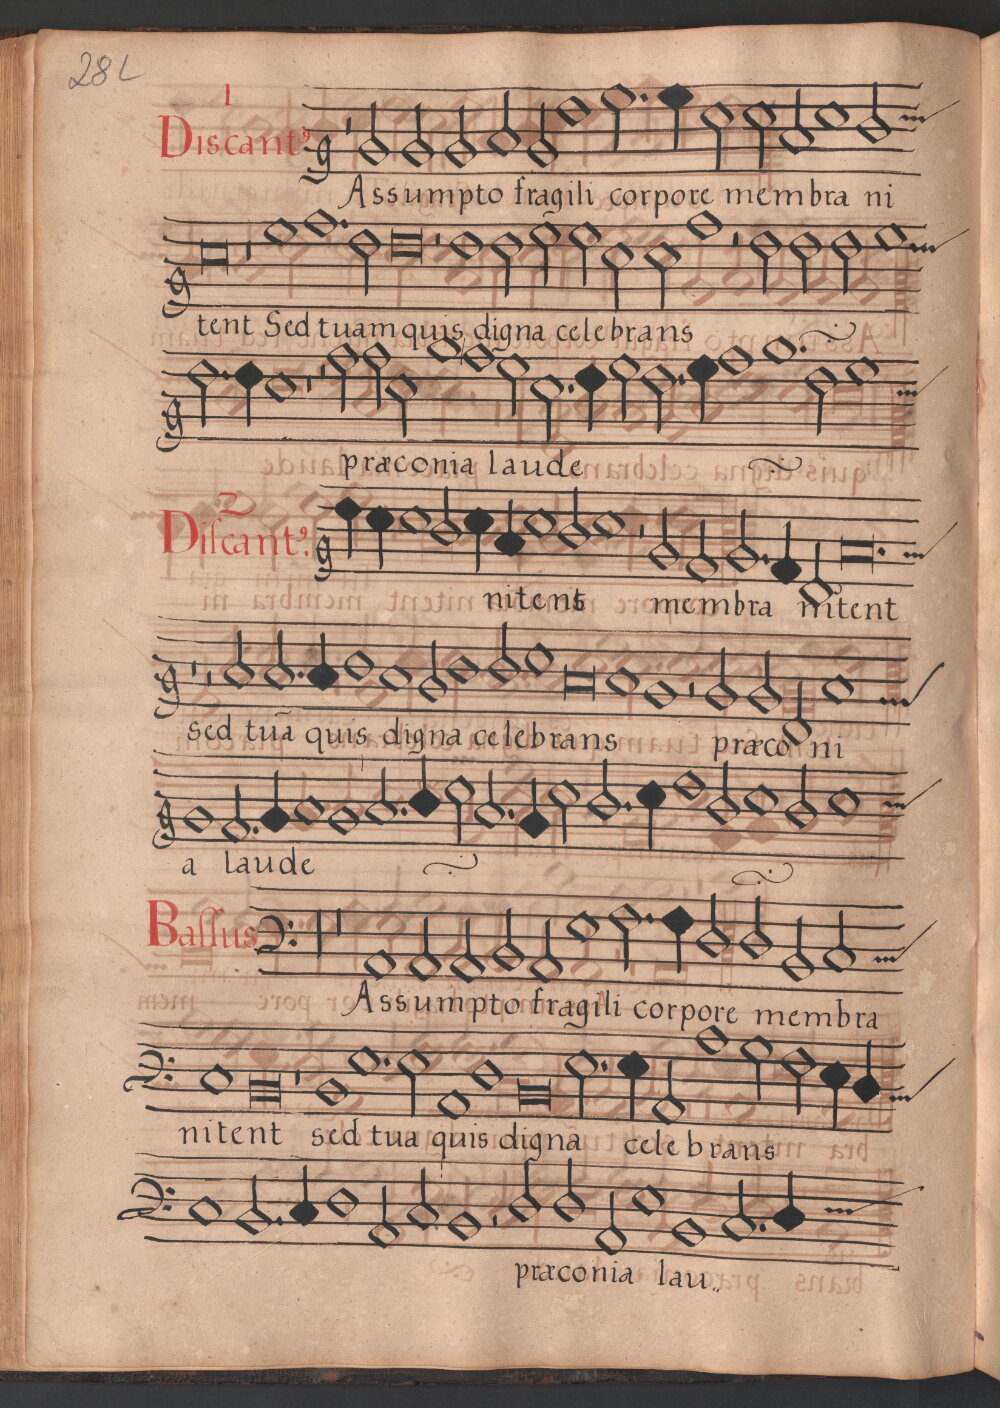 28
1
Discantꝰ
Assumpto fragili corpore membra ni
tent Sed tuam quis digna celebrans
præconia laude
2
Discantꝰ.
nitent membra nitent
sed tuā quis digna celebrans præco ni
a laude
Bassus
Assumpto fragili corpore membra
nitent sed tua quis digna celebrans
præconia lau..